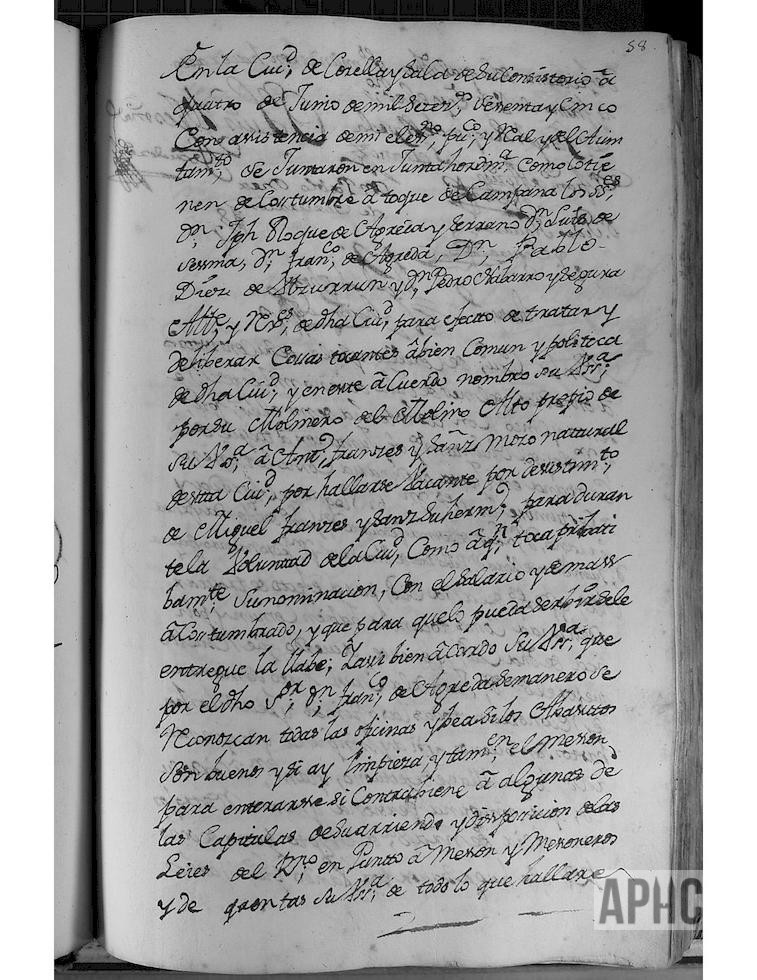 58
En la Ciud, de Corella y Sala de su Consistorio â
quatro de Junio de mil seteno, Setenta y Cinco
Con avistencia de mi el esno, puco, y Real y del Aiun
tamto, se Juntaron en Junta hordina Como lo tie
nen de Costumbre â toque de Campana los SSes,
Dn, Jph Roque de Agreda y Serrano Dn, Luis de
Sesma, Dn, Franco, de Agreda, Dn, Pablo
Diez de Ulzurrun y Dn, Pedro Nabarro y Segura
Alle, y Rexes, de dha Ciud, para efecto de tratar y
deliberar Cosas tocantes â bien Comun y politica
de dha Ciud, y en este âCuerdo nombro su Sria,
por su Molinero del Molino Alto propio de
su Sria, â Anto, Franzes y Sanz Mozo natural
de esta Ciud, por hallarse Vacante por desistimto,
de Miguel Franzes y Sanz su hermo, para duran
te la Voluntad de la Ciud, Como â qn, toca pribati
bamte, su nominacion, Con el salario y demas
âCostumbrado, y que para que lo pueda serbir se le
entregue la llabe; Y asi bien âCordo su Sria, que
por el dho Sor, Dn, Franco, de Agreda Semanero se
Reconozcan todas las oficinas y bea si los Abastos
son buenos y si ay limpieza, y tamen, el Meson
para enterarse si Contrabiene â algunas de
las Capitulas de su arriendo y disposicion de las
Leies del Rno, en Punto â Meson y Mesoneros
y de quentas su Sria, de todo lo que hallare
APHC